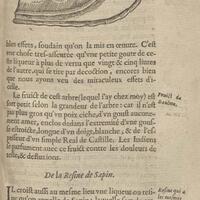 bles effets, soudain qu'on la mis en œuure. C'est
vne chose tres-asseuree qu'vne petite goute de ceste
liqueur à plus de vertu que vingt & cinq liures
de l'autre, qui se tire par decoction, encores bien
que nous ayons veu des miraculeux effets d'icelle.
Le fruict de cest arbre (lequel i'ay chez moy) est
fort petit selon la grandeur de l'arbre: car il n'est
pas plus gros qu'vn poix ciche, d'vn goust aucunement
amer, enclos dedans l'extremité d'vne gousse
estroicte, longue d'vn doigt, blanche, & de l'espesseur
d'vn simple Real de Castille. Les Indiens
se parfument auec ce fruict contre les douleurs de
teste, & defluxions.
Fruict du
Baulme.
De la Resine de Sapin.
IL croist aussi au mesme lieu vne liqueur ou resi-
Resine qui a
les mesmes